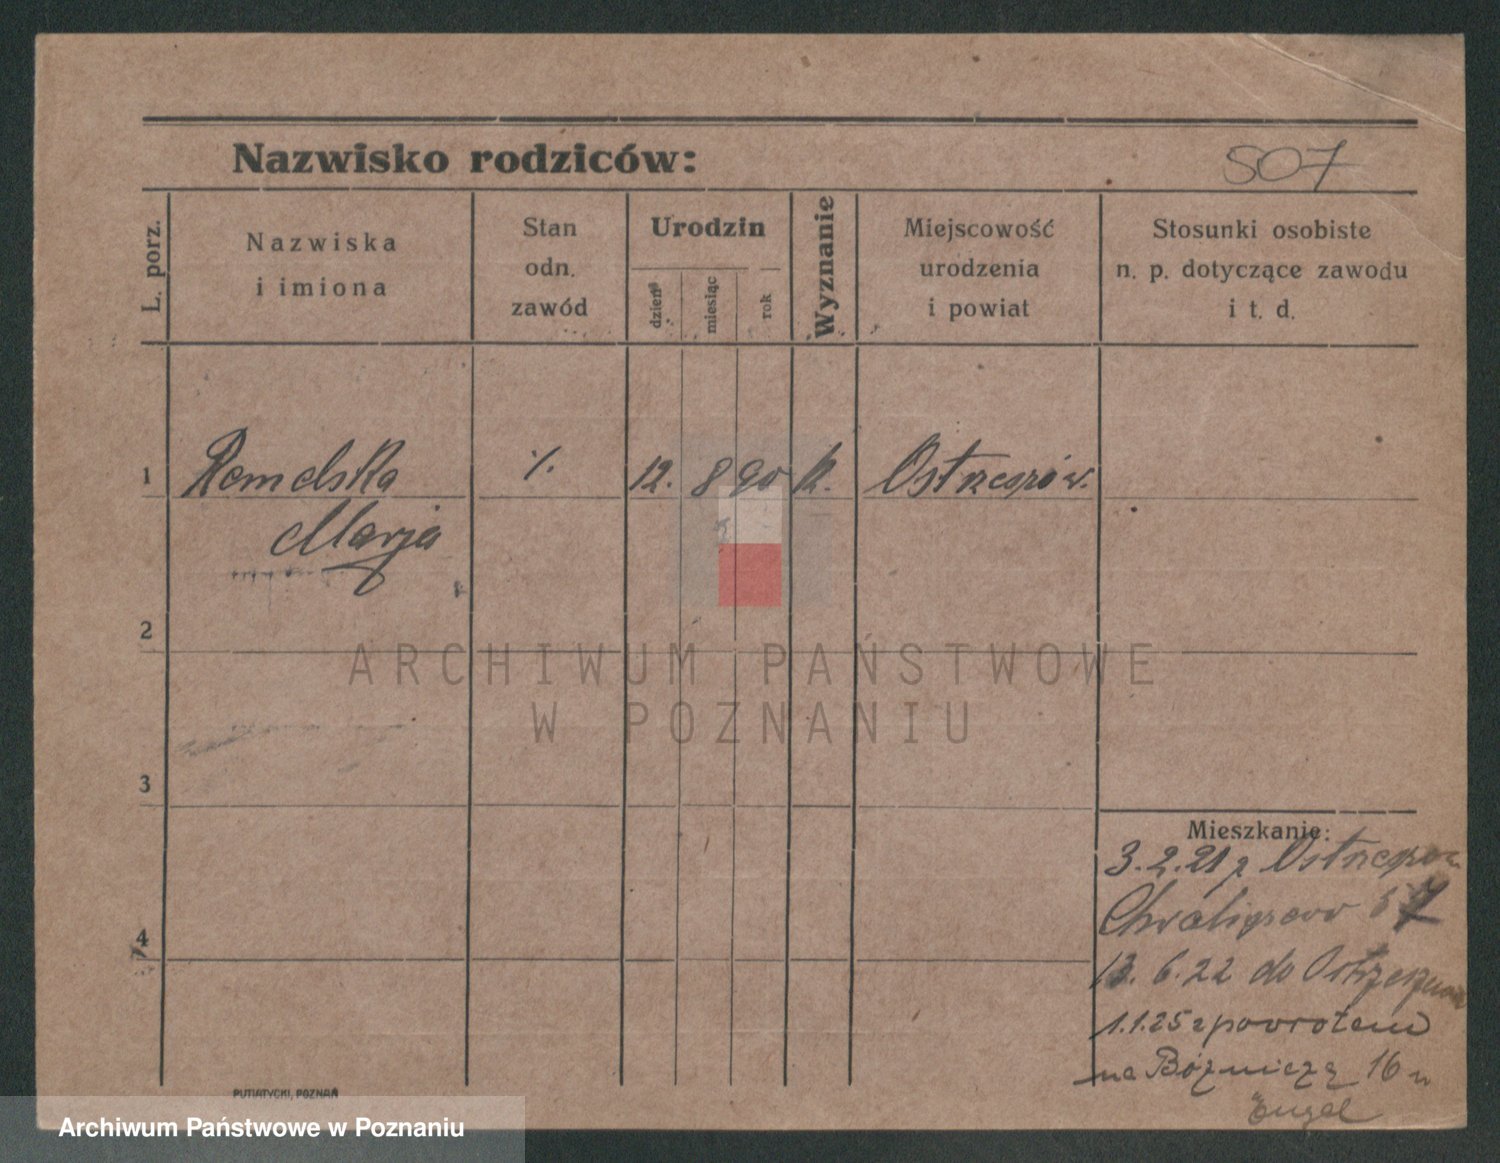 Nazwisko rodziców:
507
L. porz.
Nazwiska
i imiona
Stan
odn.
zawód
Urodzin
dzień
miesiąc
rok
Wyznanie
Miejscowość
urodzenia
i powiat
Stosunki osobiste
n. p. dotyczące zawodu
i t. d.
1
Marja
12. 8 90 k.
2
ARCHIWUM PAŃSTWOWE
W POZNANIU
3
Mieszkanie:
3.2.21 z
4
13. 6.22 do
1.1.25 z powrotem
na Bóżniczą 16
PUTIATYCKI, POZNAŃ
Archiwum Państwowe w Poznaniu